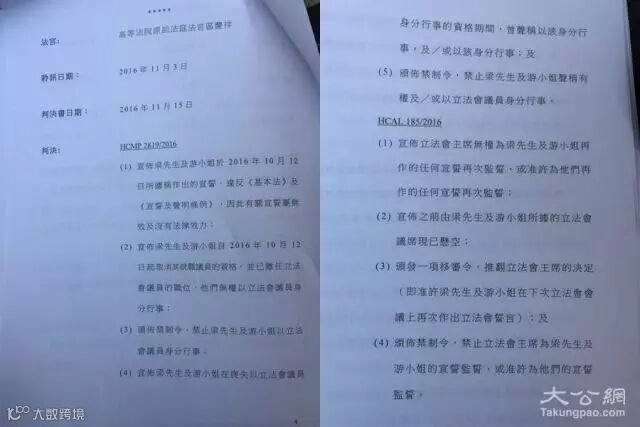 *****
法官： 高等法院原訟法庭法官區慶祥
聆訊日期： 2016 年 11 月 3 日
判決書日期： 2016 年 11 月 15 日
判決： HCMP 2819/2016
(1) 宣佈梁先生及游小姐於 2016 年 10 月 12
日所據稱作出的宣誓，違反《基本法》及
《宣誓及聲明條例》，因此有關宣誓屬無
效及沒有法律效力；
(2) 宣佈梁先生及游小姐自 2016 年 10 月 12
日起取消其就職議員的資格，並已離任立法
會議員的職位，他們無權以立法會議員身
分行事；
(3) 頒佈禁制令，禁止梁先生及游小姐以立法
會議員身分行事；
(4) 宣佈梁先生及游小姐在喪失以立法會議員
身分行事的資格期間，曾聲稱以該身分行
事，及／或以該身分行事；及
(5) 頒佈禁制令，禁止梁先生及游小姐聲稱有
權及／或以立法會議員身分行事。
HCAL 185/2016
(1) 宣佈立法會主席無權為梁先生及游小姐再
作的任何宣誓再次監誓，或准許為他們再
作的任何宣誓再次監誓；
(2) 宣佈之前由梁先生及游小姐所據的立法會
議席現已懸空；
(3) 頒發一項移審令，推翻立法會主席的決定
（即准許梁先生及游小姐在下次立法會會
議上再次作出立法會誓言）；及
(4) 頒佈禁制令，禁止立法會主席為梁先生及
游小姐的宣誓監誓，或准許為他們的宣誓
監誓。
大数跨境
大公網
Takungpao.com